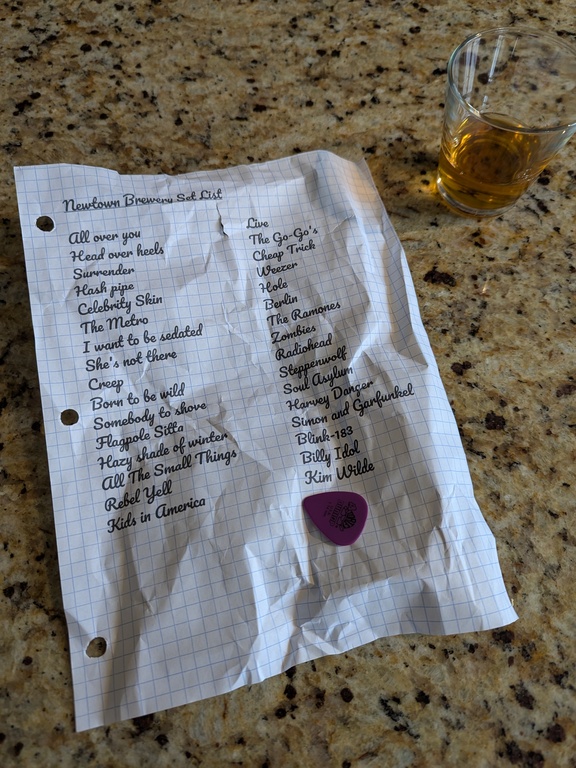 Newtown Brewery Set List
All over you Live
Head over heels The Go-Go's
Surrender Cheap Trick
Hash pipe Weezer
Celebrity Skin Hole
The Metro Berlin
I want to be sedated The Ramones
She's not there Zombies
Creep Radiohead
Born to be wild Steppenwolf
Somebody to shove Soul Asylum
Flagpole Sitta Harvey Danger
Hazy shade of winter Simon and Garfunkel
All The Small Things Blink-183
Rebel Yell Billy Idol
Kids in America Kim Wilde